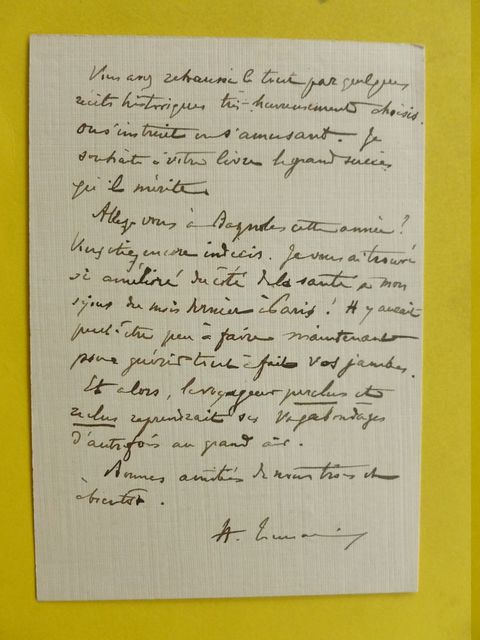 Vous avez rehaussé le tout par quelques
récits historiques très heureusement choisis.
On s'instruit en s'amusant. Je
souhaite à votre livre le grand succès
qu'il mérite.
Allez-vous à Bagnoles cette année ?
Vous étiez encore indécis. Je vous ai trouvé
si amélioré du côté de la santé à mon
séjour du mois dernier à Paris ! Il y aurait
peut-être peu à faire maintenant
pour guérir tout à fait vos jambes.
Et alors, le voyageur perclus et
reclus reprendrait ses vagabondages
d'autrefois au grand air.
Bonnes amitiés de nous trois et
à bientôt.
H.